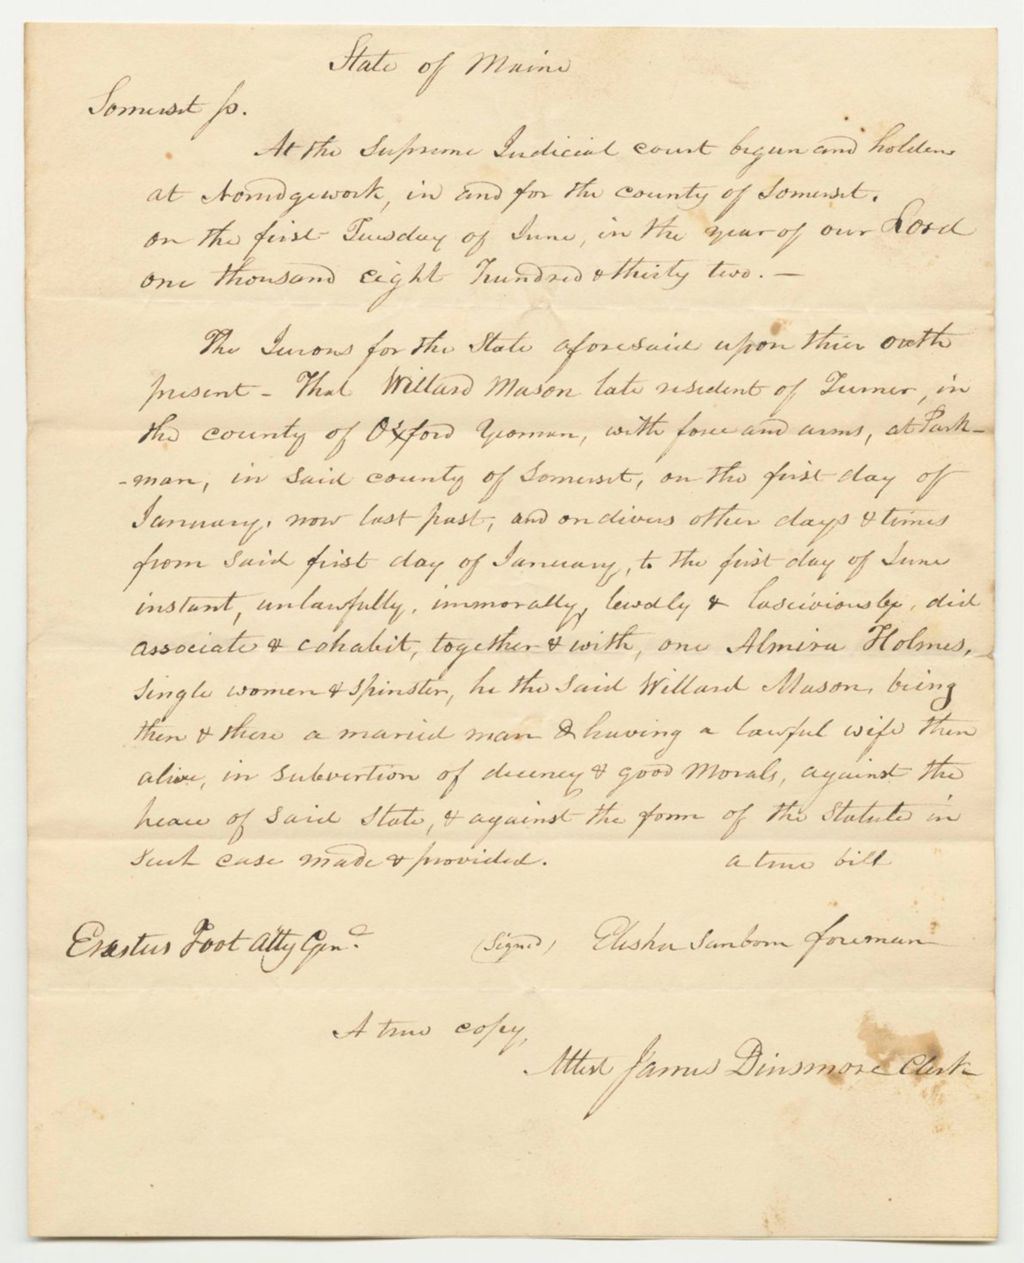 State of Maine
Somerset ss.
At the Supreme Judicial court begun and holden
at Norridgewock, in and for the county of Somerset.
on the first Tuesday of June, in the year of our Lord
one thousand eight hundred & thirty two. —
The Jurors for the State aforesaid upon thier oath
present - That Willard Mason late resident of Turner, in
the county of Oxford Yeoman, with force and arms, at Park-
-man, in said county of Somerset, on the first day of
January, now last past, and on divers other days & times
from said first day of January, to the first day of June
instant, unlawfully, immorally, lewdly & lasciviously, did
associate & cohabit, together & with, one Almira Holmes,
single women & spinster, he the said Willard Mason, being
then & there a maried man & having a lawful wife then
alive, in subvertion of decency & good Morals, against the
peace of said State, & against the form of the Statute in
such case made & provided. a true bill
Erastus Foot Atty Genl. (Signed) Elisha Sanborn foreman
A true copy,
Attest James Dinsmore Clerk